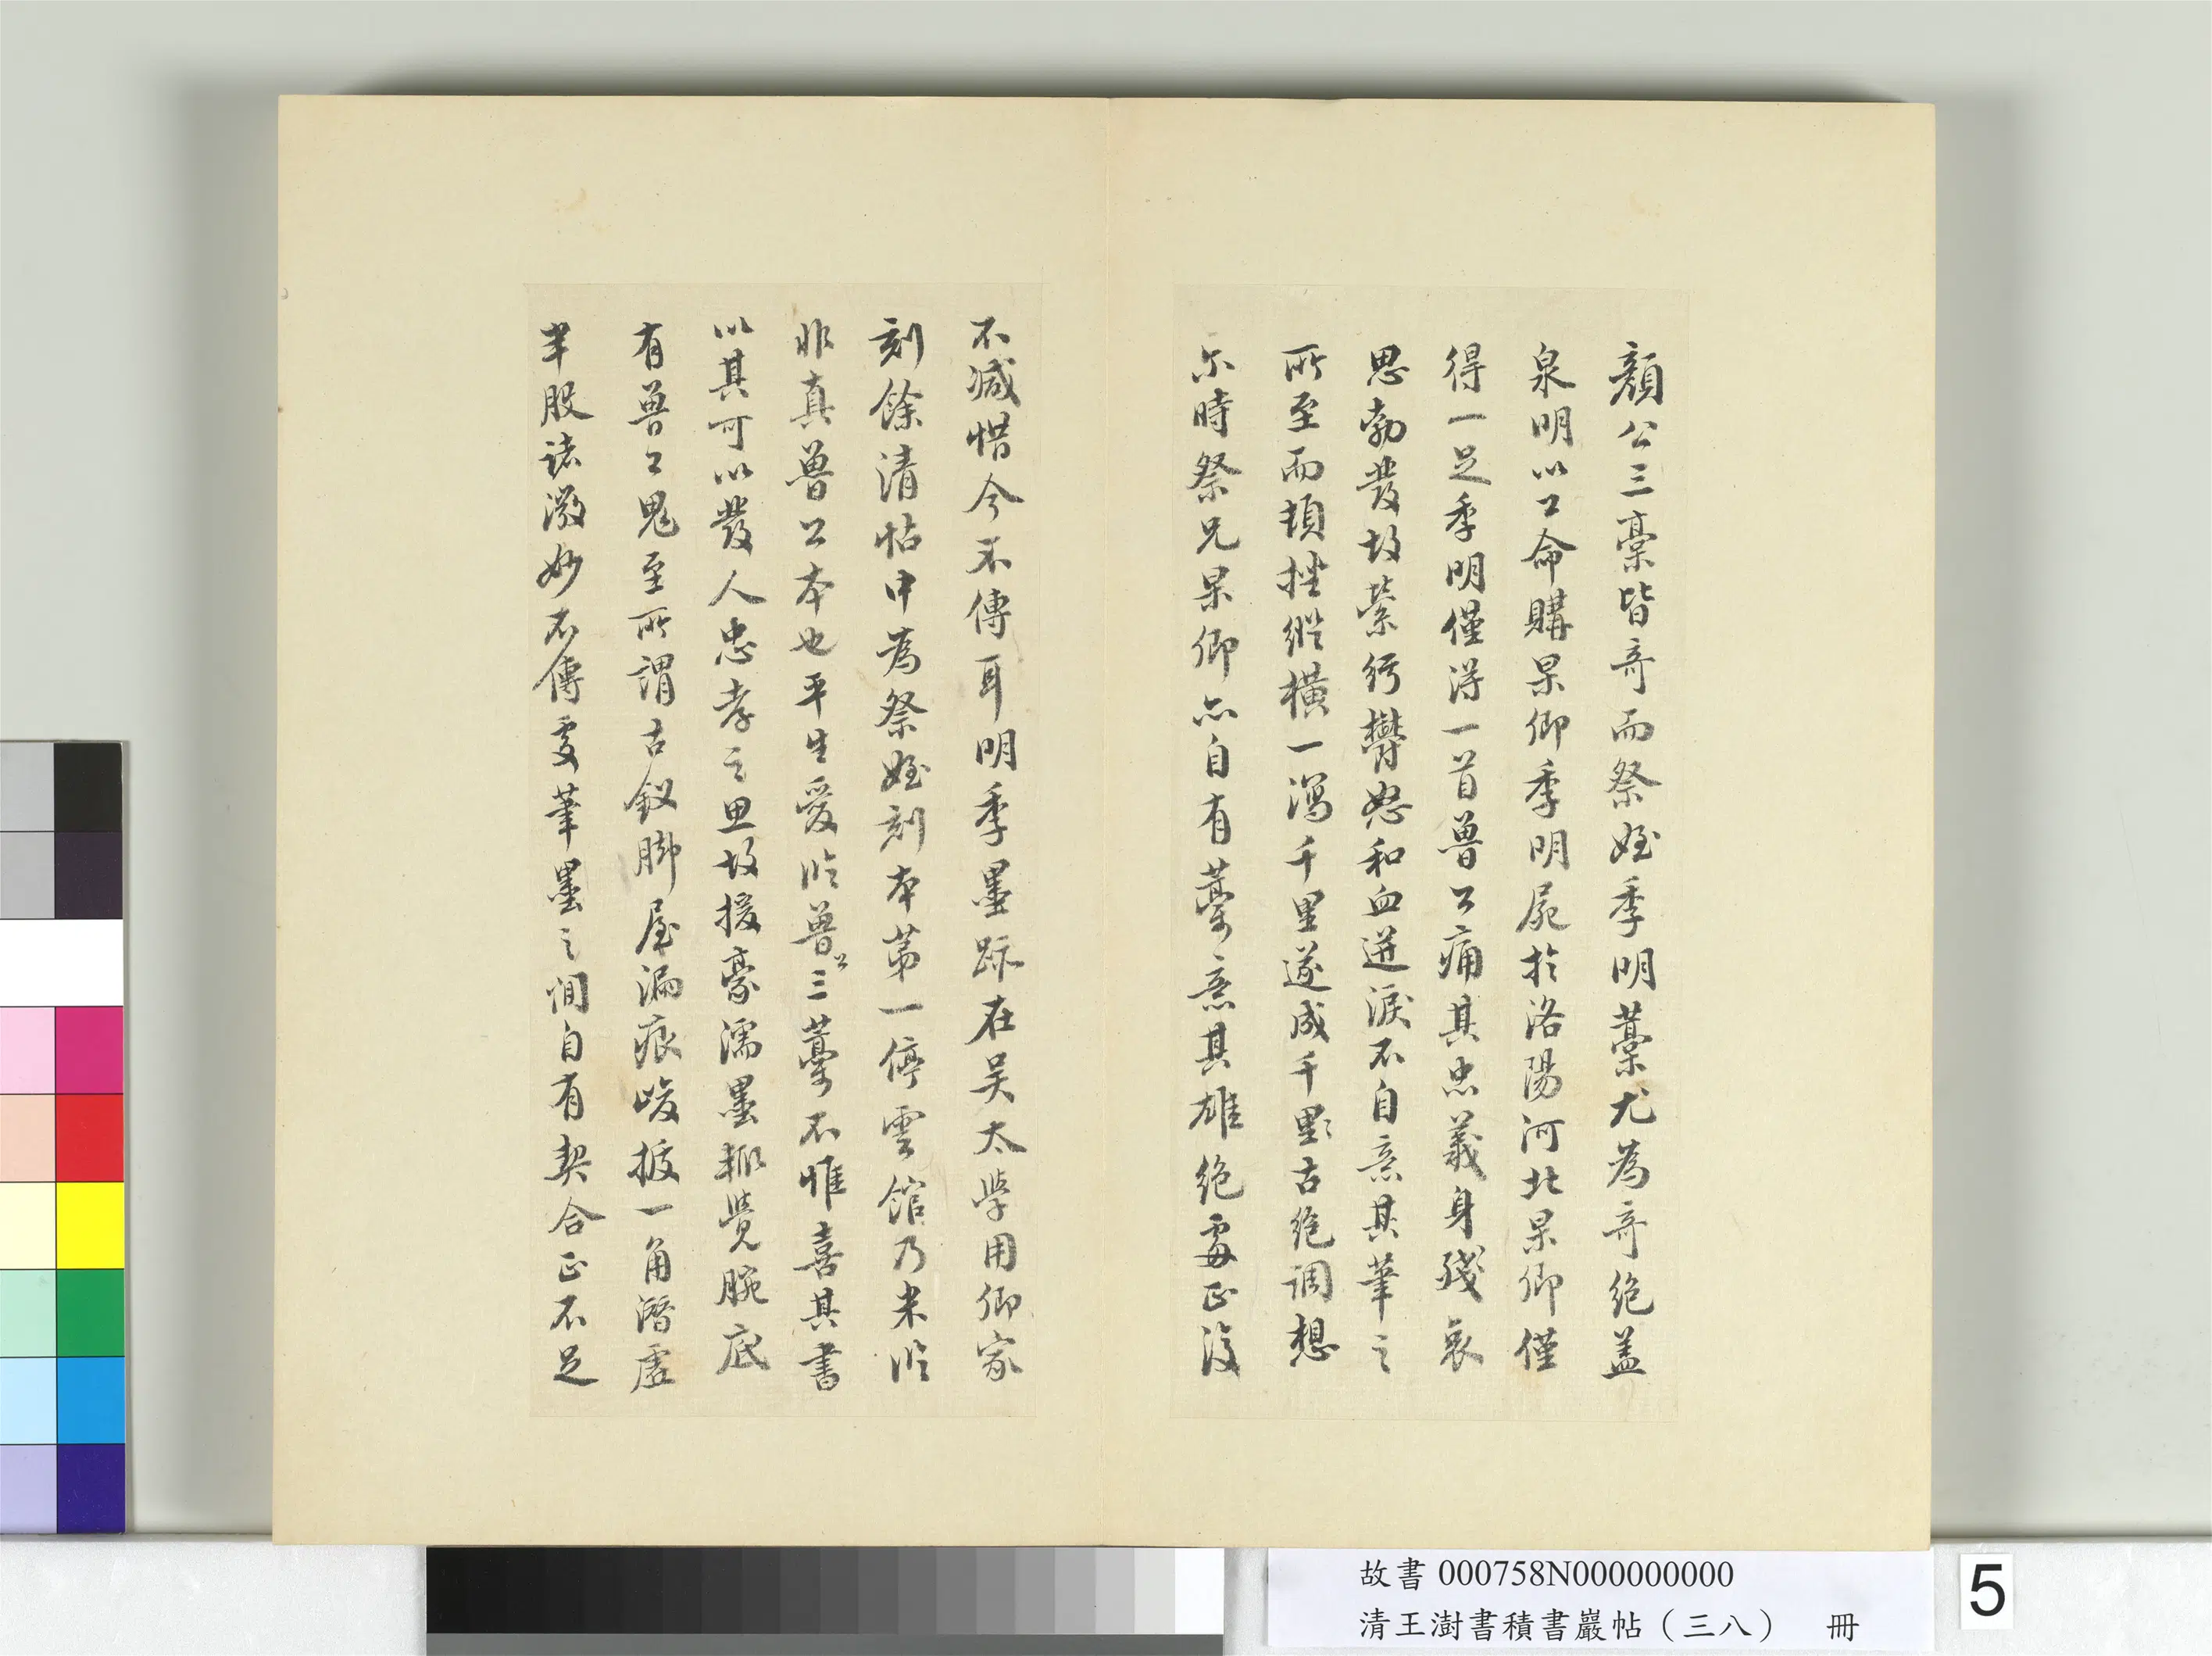 顏公三稾皆奇而祭姪季明藁尤為奇絕盖
泉明以公命購杲卿季明屍於洛陽河北杲卿僅
得一足季明僅得一首魯公痛其忠義身殘哀
思勃發故縈紆鬱怒和血迸淚不自意其筆之
所至而頓挫縱橫一瀉千里遂成千古絕調想
尔時祭兄杲卿亦自有藁意其雄絕處正復
不減惜今不傳耳明季墨跡在吴太學用卿家
刻餘清帖中為祭姪刻本第一停雲館乃米臨
非真魯公本也平生愛臨魯公三藁不惟喜其書
以其可以發人忠孝之思故援豪濡墨輒覺腕底
有魯公鬼至所謂古釵腳屋漏痕皴披一角潛虛
半股諸激妙不傳處筆墨之間自有契合正不足
故書 000758N000000000
清王澍書積書巖帖（三八） 冊
5